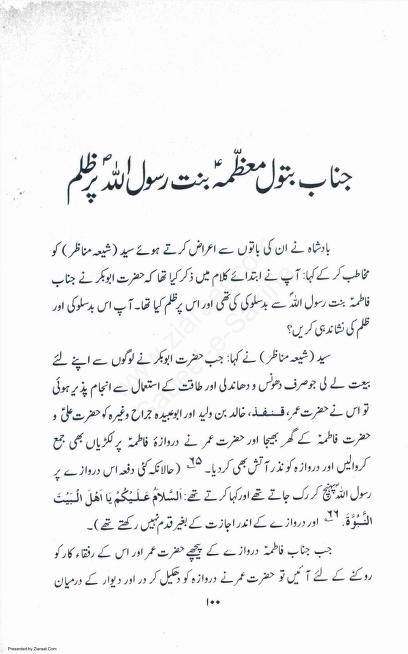 جناب بتول معظّمہؑ بنت رسول اللہؐ پر ظلم
بادشاہ نے ان کی باتوں سے اعراض کرتے ہوئے سید (شیعہ مناظر) کو
مخاطب کر کے کہا: آپ نے ابتدائے کلام میں ذکر کیا تھا کہ حضرت ابوبکر نے جناب
فاطمہؑ بنت رسول اللہؐ سے بدسلوکی کی تھی اور اس پر ظلم کیا تھا۔ آپ اس بدسلوکی اور
ظلم کی نشاندہی کریں؟
سید (شیعہ مناظر) نے کہا: جب حضرت ابوبکر نے لوگوں سے اپنے لئے
بیعت لے لی جو صرف دھونس و دھاندلی اور طاقت کے استعمال سے انجام پذیر ہوئی
تو اس نے حضرت عمر، قنفذ، خالد بن ولید اور ابوعبیدہ جراح وغیرہ کو حضرت علیؑ و
حضرت فاطمہؑ کے گھر بھیجا اور حضرت عمر نے دروازۂ فاطمہؑ پر لکڑیاں بھی جمع
کروالیں اور دروازہ کو نذر آتش بھی کردیا۔ ۶۵ (حالانکہ کئی دفعہ اس دروازے پر
رسول اللہؐ پہنچ کر رک جاتے تھے اور کہا کرتے تھے: اَلسَّلَامُ عَلَیْکُمْ یَا اَهْلَ الْبَیْتَ
النُّبُوَّةَ. ۶۶ اور دروازے کے اندر اجازت کے بغیر قدم نہیں رکھتے تھے)۔
جب جناب فاطمہؑ دروازے کے پیچھے حضرت عمر اور اس کے رفقاء کار کو
روکنے کے لئے آئیں تو حضرت عمر نے دروازہ کو دھکیل کر در اور دیوار کے درمیان
۱۰۰
Presented by Ziaraat.Com